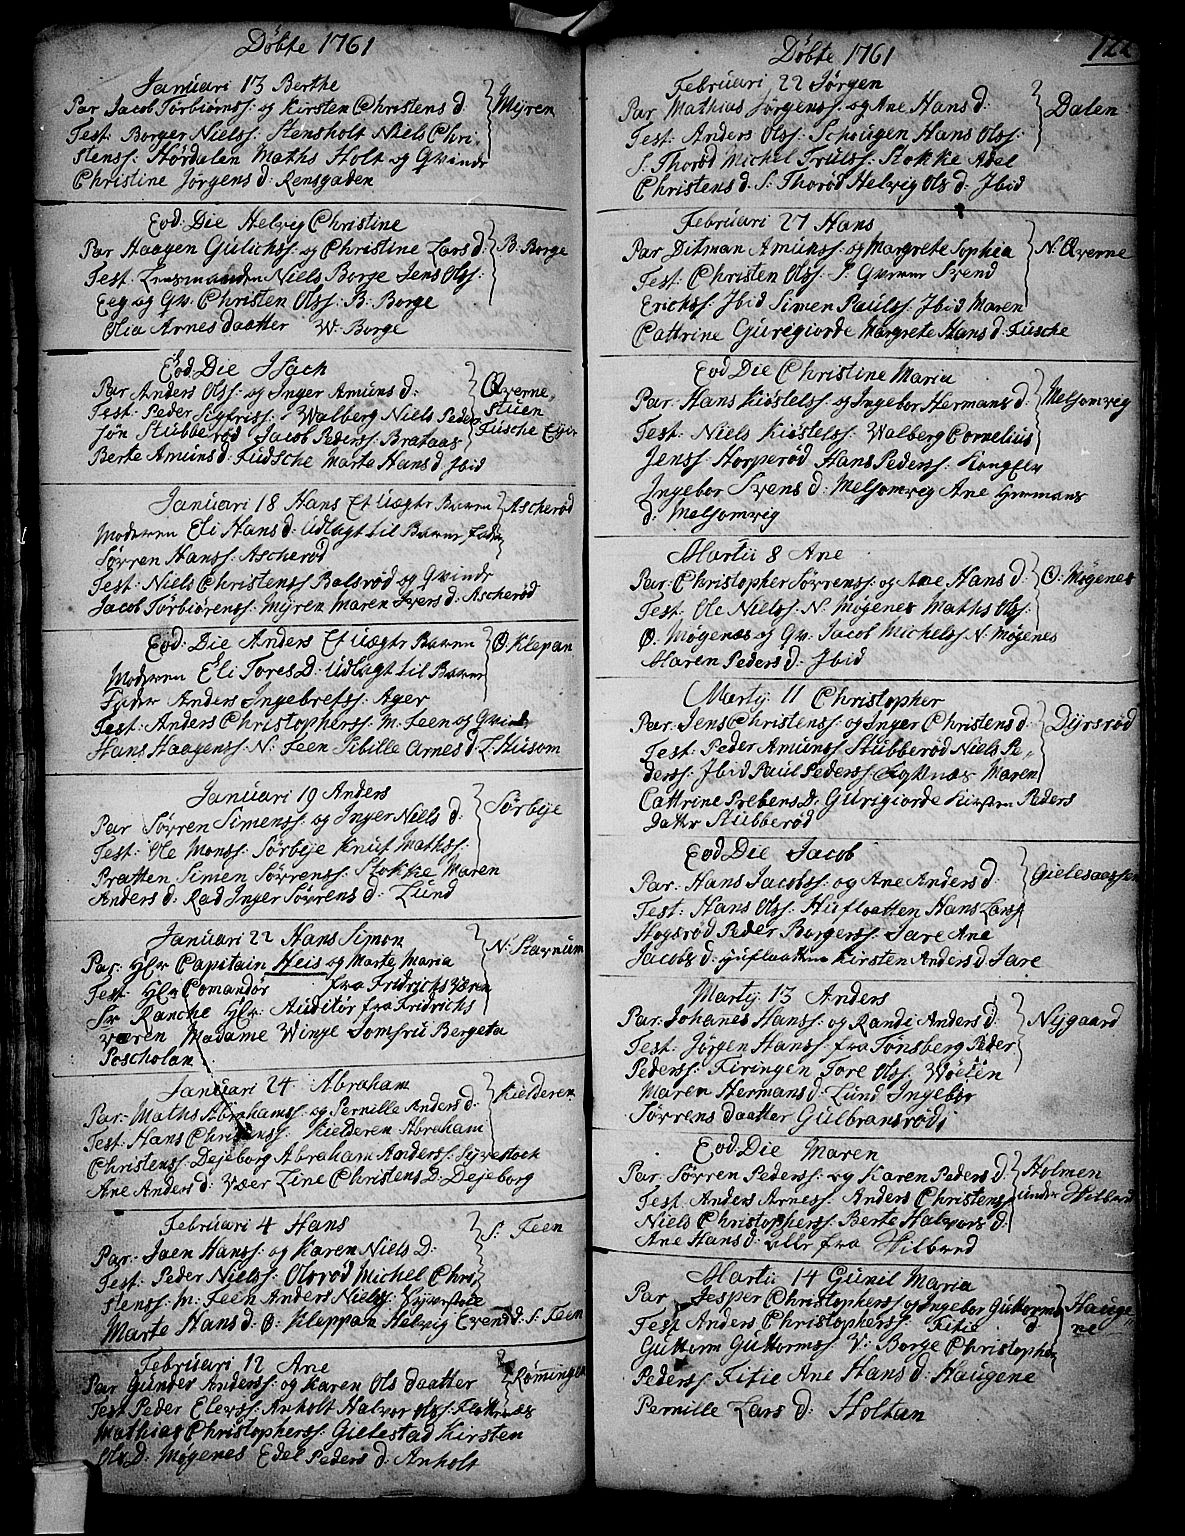 Døbte 1761
Januari 13 Berthe
Par Jacob Torbiørnss: og Kirsten Christens d: Myren
Test: Borger Nielss: Stensholt Niels Chri,
stenss: Hordalen Maths Holt og Qvinde
Christine Jørgens d: Rensgaden
Eod: Die Helvig Christine
Par Haagen Gulichss: og Christine Lars d: B: Borge
Test: Niels Borge Jens Olss:
Eeg og Qv: Christen Olss: B: Borge
Olia Arnes daatter W: Borge
Eod Die Isach
Par Anders Olss: og Inger Amuns d: Qverne,
Test: Peder Sigfriss: Walberg Niels Peder stuen
søn Stubberød Jacob Pederss: Brataas Fusche Eyer
Berte Amuns d: Fudsche Marte Hans d Ibid
Januari 18 Hans Et Uægte Baren Ascherød
Moderen Eli Hans d: Udlagt til Barne Fader
Sørren Hanss: Ascherød
Test: Niels Christenss Balsrød og Qvinde
Jacob Torbiørenss: Myren Maren Ivers d: Ascherød
Eod: Die Anders Et Uægte Baren Ø: Klepan
Moderen Eli Tores D: Udlagt til Barne
Fader Anders Ingebretss: Ager
Test: Anders Christopherss M: Feen og Qvinde
Hans Haagenss: N: Feen Sibille Arnes d: L: Husom
Januari 19 Anders
Par Sørren Simenss: og Inger Niels d: Sørbye
Test: Ole Monss: Sørbye Knut Mathss:
Pratten Simen Sørrenss: Stokke Maren
Anders d: Rad Inger Sørrens d: Lund
Januari 22 Hans Simon
Par: Hr Capitain Heis og Marte Maria N: Stavnum
Test: Hr Comandør fra Fridrichsværen
Sr Ranche Hr: Auditør fra Fridrichs
væren Madame Winge Jomfru Bergeta
Poscholan
Januari 24 Abraham
Par: Maths Abrahamss: og Pernille Anders d: Kielderen
Test: Hans Christenss: Kielderen Abraham
Christenss: Dejeborg Abraham Anderss:
Ane Anders d: Vær Line Christens D: Dejeborg
Februari 4 Hans
Par: Joen Hanss: og Karen Niels D: S: Feen
Test: Peder Nielss: Olsrød Michel Chri,
stenss: M: Feen Anders Nielss:
Marte Hans d: Ø: Kleppan Helvig Evens d: S: Feen
Februari 12 Ane
Par Gunder Anderss: og Karen Ols daatter Rømingen
Test Peder Elevss: Anholt Halvor Olss: Flottnæs
Mathias Christopherss: Gielestad Kirsten
Ols D: Møgenes Edel Peders d: Anholt
122
Døbte 1761
Februari 22 Jørgen
Par Mathias Jørgenss: og Ane Hans d: Dalen
Test: Anders Olss: Schougen Hans Olss:
S: Thorød Michel Trulss: Stokke Adel
Christens d: S: Thorød Helvig Ols d: Ibid
Februari 27 Hans
Par Ditman Amunss: og Margrete Sophia N: Qverne
Test: Christen Olss: S: Qverne Svend
Erichss: Ibid Simen Paulss: Ibid Maren
Cattrine Guregiorde Margrete Hans d: Fusche
Eod Die Christine Maria
Par: Hans Kiøstelss: og Ingebor Hermans d: Melsomvig
Test: Niels Kiøstelss: Walberg Cornelius
Jenss: Horperød Hans Pederss: Kongsev
Ingebor Svens d: Melsomvig Ane Hermans
d: Melsomvig
Martii 8 Ane
Par: Christopher Sørrenss: og Ane Hans d: Ø: Møgenes
Test: Ole Nielss: N: Møgenes Maths Olss:
Ø: Møgenæs og Qv: Jacob Michelss N: Møgenes
Maren Peders d: Ibid
Martij 11 Christopher
Par: Jens Christenss: og Inger Christens d: Dyrsrød
Test: Peder Amunss Stubberød Niels Pe,,
derss: Ibid Paul Pederss Maren
Cattrine Prebens D: Gurigiorde Kirsten Peders
Datter Stubberød
Eod Die Jacob
Par: Hans Jacobss: og Ane Anders d: Gielesaassen
Test: Hans Olss: Huflaatten Hans Larss
Hogsrød Peder Borgerss: Sare Ane
Jacobs d: Huflaatten Kirsten Anders d Sare
Martij 13 Anders
Par: Johanes Hanss: og Randi Anders d: Nygaard
Test: Jørgen Hanss: fra Tønsberg Peder
Pederss: Firingen Tore Olss: Wøeien
Maren Hermans d: Lund Ingebor
Sørrens daatter Gulbransrødj
Eod Die Maren
Par: Sørren Pederss: og Karen Peders d: Holmen
Test: Anders Arness: Anders Christenss under Hilbred
Niels Christopherss: Berte Halvors d:
Ane Hans d: alle fra Hilbred
Martii 14 Gunil Maria
Par Jesper Christopherss og Ingebor Guttorms Hauge,,
Test Anders Christopherss: Fitie d: ne
Guttorm Guttormss: V: Borge Christopher
Pederss: Fitie Ane Hans d: Haugene
Pernille Lars d: Holtan